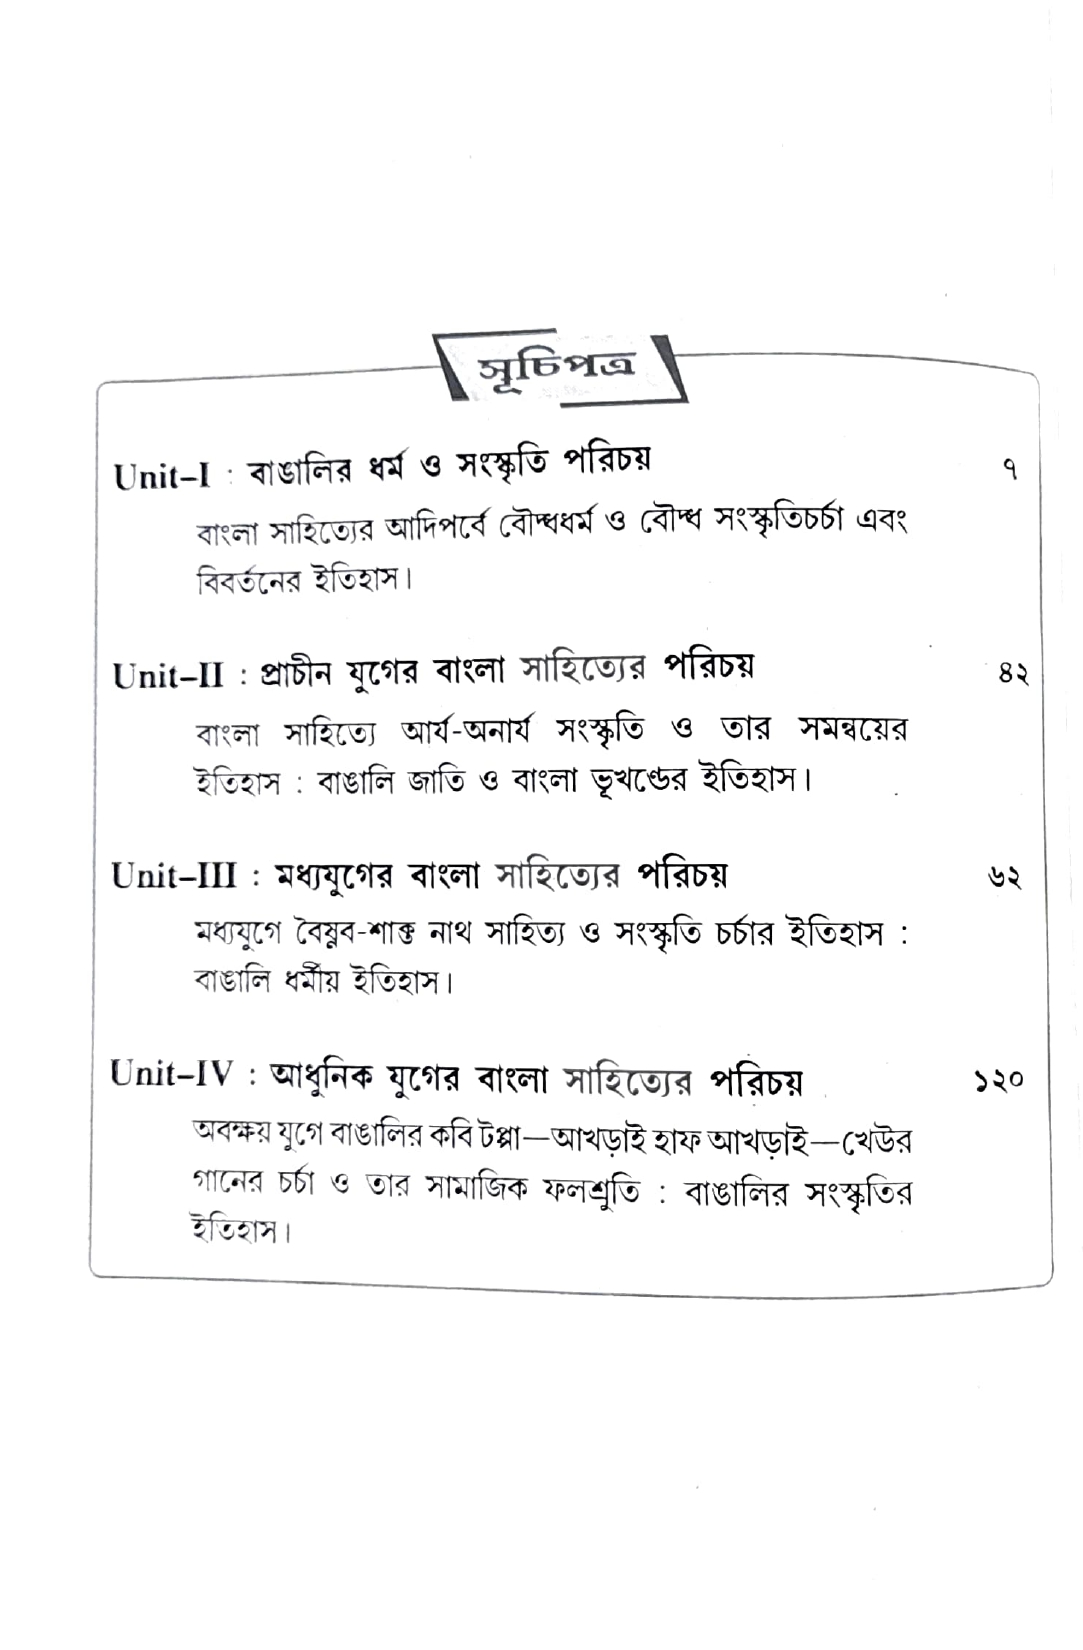 সূচিপত্র
Unit–I : বাঙালির ধর্ম ও সংস্কৃতি পরিচয় ৭
বাংলা সাহিত্যের আদিপর্বে বৌদ্ধধর্ম ও বৌদ্ধ সংস্কৃতিচর্চা এবং
বিবর্তনের ইতিহাস।
Unit–II : প্রাচীন যুগের বাংলা সাহিত্যের পরিচয় ৪২
বাংলা সাহিত্যে আর্য-অনার্য সংস্কৃতি ও তার সমন্বয়ের
ইতিহাস : বাঙালি জাতি ও বাংলা ভূখণ্ডের ইতিহাস।
Unit–III : মধ্যযুগের বাংলা সাহিত্যের পরিচয় ৬২
মধ্যযুগে বৈষ্ণব-শাক্ত নাথ সাহিত্য ও সংস্কৃতি চর্চার ইতিহাস :
বাঙালি ধর্মীয় ইতিহাস।
Unit–IV : আধুনিক যুগের বাংলা সাহিত্যের পরিচয় ১২০
অবক্ষয় যুগে বাঙালির কবি টপ্পা—আখড়াই হাফ আখড়াই—খেউর
গানের চর্চা ও তার সামাজিক ফলশ্রুতি : বাঙালির সংস্কৃতির
ইতিহাস।